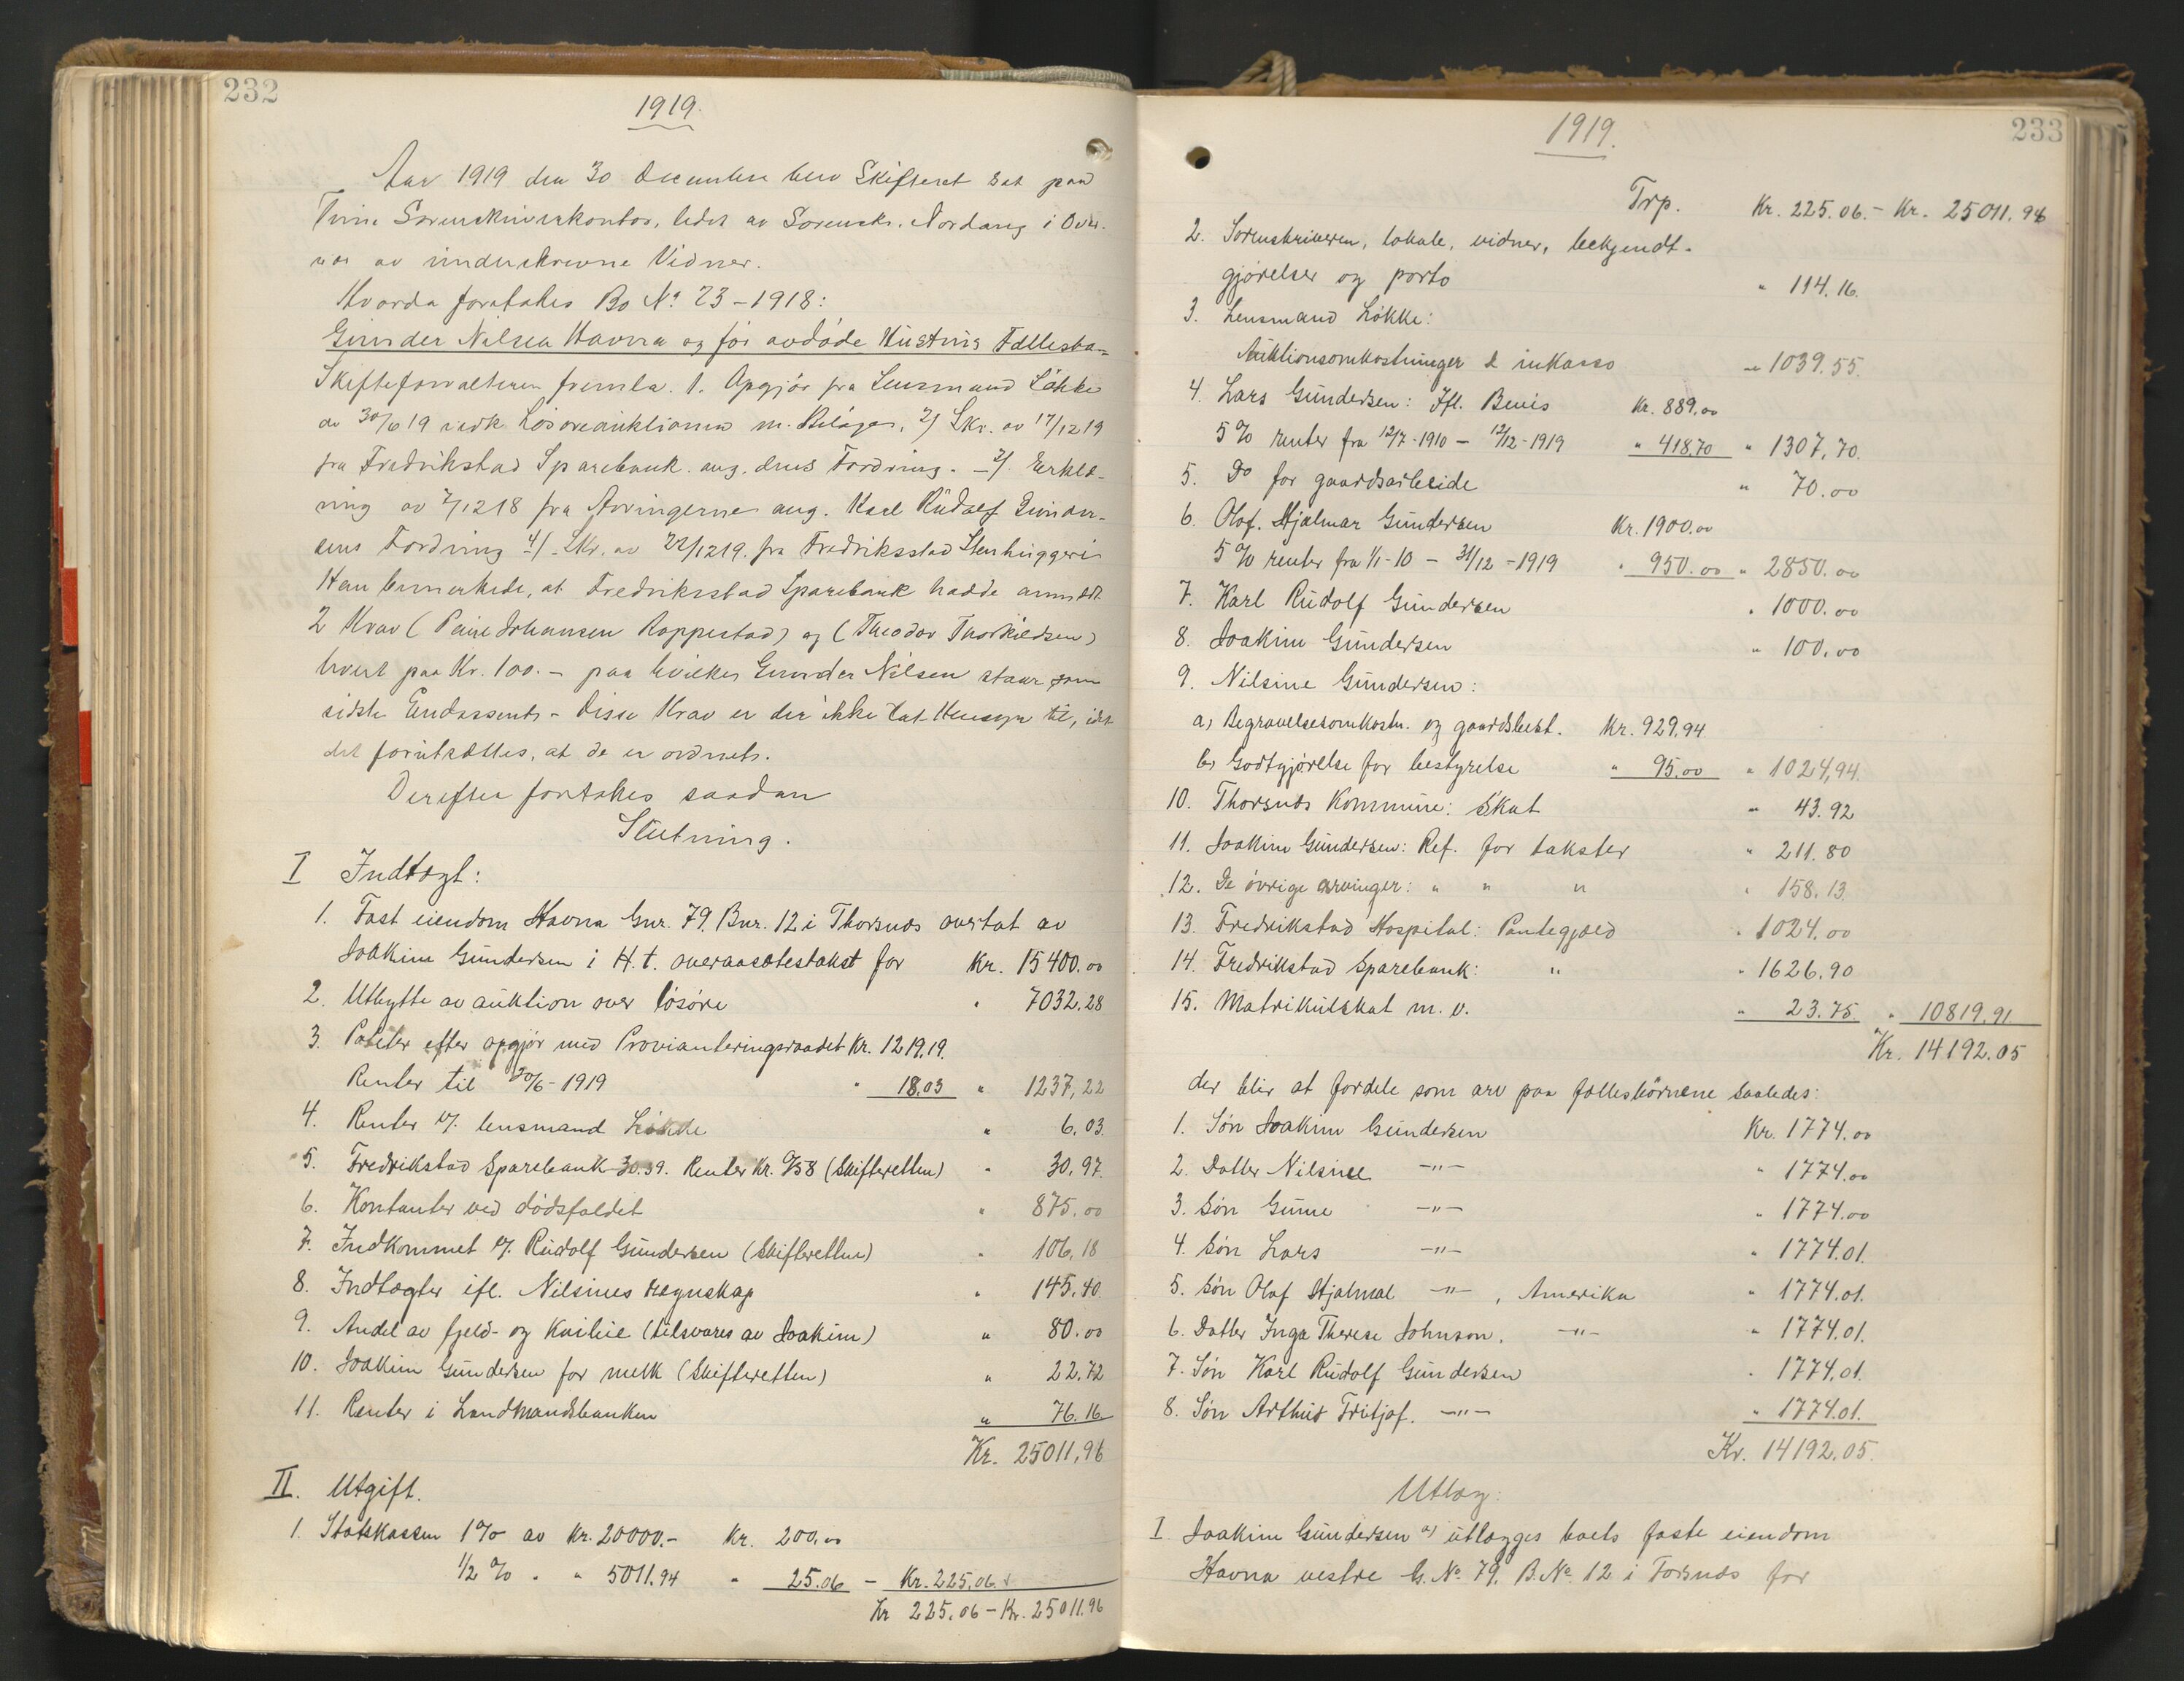 232
1919.
Aar 1919 den 30 December blev Skifteret sat paa
Tune Sorenskriverkontor, ledet av Sorenskr. Nordang i Over-
vær av underskrevne Vidner.
Hvorda foretokes Bo No 23 - 1918:
Gunder Nilsen Havna og før avdøde Hustrus Fællesbo-
Skifteforvalteren fremla. 1. Opgjør fra Lensmand Løkke
av 30/6 19 vedk Løsøreauktionen m. Bilager, 2) Skr. av 17/12 19
fra Fredrikstad Sparebank ang. dens Fordring. - 3) Erklæ-
ring av 7/12 18 fra Arvingerne ang. Karl Rudolf Gunder-
sens Fordring 4) Skr. av 22/12 19. fra Fredriksstad Stenhuggeri
Han bemerkede, at Fredriksstad Sparebank hadde anmeldt
2 Krav (Johansen Roppestad) og (Theodor Thorkildsen)
hvert paa Kr. 100. - paa hvilke Gunder Nilsen staar som
sidste Endossent - Disse Krav er der ikke tat Hensyn til, idet
det forutsættes, at de er ordnet.
Derefter foretokes saadan
Slutning.
I Indtægt:
1. Fast eiendom Havna Gnr. 79. Bnr. 12 i Thorsnæs overtat av
Joakim Gundersen i H. t. overaasætestakst for Kr. 15400.00
2. Utbytte av auktion over løsøre " 7032.28
3. Poteter efter opgjør med Provianteringsraadet Kr. 1219.19.
Renter til 30/6 - 1919 " 18.03 " 1237,22
4. Renter v/. lensmand Løkke " 6.03.
5. Fredrikstad Sparebank 30.39. Renter Kr. 0/58 (Skifteretten) " 30.97.
6. Kontanter ved dødsfaldet " 875.00
7. Indkommet v/. Rudolf Gundersen (Skifteretten) " 106.18
8. Indtægter ifl. Nilsines regnskap " 145.40.
9. Andel av fjeld- og Kvilie (tilsvares av Joakim) " 80.00
10. Joakim Gundersen for melk (Skifteretten) " 22.72
11. Renter i Landmandsbanken " 76.16
Kr. 25011,96
II. Utgift.
1. Statskassen 1% av Kr. 20000.- Kr. 200.00
1/2 % " " 5011.94 " 25.06 - Kr. 225,06.
Kr 225.06 - Kr. 25011.96
233
1919.
Trp. Kr. 225.06. - Kr. 25011.96
2. Sorenskriveren, lokale, vidner, bekjendt-
gjørelser og porto " 114.16.
3. Lensmand Løkke:
Auktionsomkostninger & inkasso " 1039.55.
4. Lars Gundersen: Ifl. Bevis Kr. 889.00
5% renter fra 12/7 - 1910 - 12/12 - 1919 " 418.70 " 1307,70.
5. Do for gaardsarbeide " 70.00
6. Olaf. Hjalmar Gundersen Kr. 1900.00
5% renter fra 1/1 - 10 - 31/12 - 1919 " 950.00 " 2850.00
7. Karl Rudolf Gundersen " 1000.00
8. Joakim Gundersen " 100.00
9. Nilsine Gundersen:
a, Begravelsesomkostn. og gaardsbest. Kr. 929.94
b, Godtgjørelse for bestyrelse " 95.00 " 1024,94.
10. Thorsnæs Kommune: Skat " 43.92
11. Joakim Gundersen: Ref. for takster " 211.80
12. De øvrige arvinger: " " " " 158.13.
13. Fredrikstad Hospital: Pantegjæld " 1024.00
14. Fredrikstad Sparebank: " " 1626.90
15. Matrikulskat m. v. " 23.75. " 10819.91
Kr. 14192.05
der blir at fordele som arv paa fællesbørnene saaledes:
1. Søn Joakim Gundersen Kr. 1774.00
2. Datter Nilsine -"- " 1774.00
3. Søn Gune -"- " 1774.00
4. Søn Lars -"- " 1774.01.
5. Søn Olaf Hjalmal -"- , Amerika " 1774.01.
6. Datter Inga Therese Johnson. -"- " 1774.01.
7. Søn Karl Rudolf Gundersen " 1774.01.
8. Søn Arthur Fritjof. -"- " 1774.01.
Kr. 14192.05.
Utlæg:
I Joakim Gundersen a) utlægges boets faste eiendom
Havna vestre G. No 79. B. No 12 i Torsnæs for